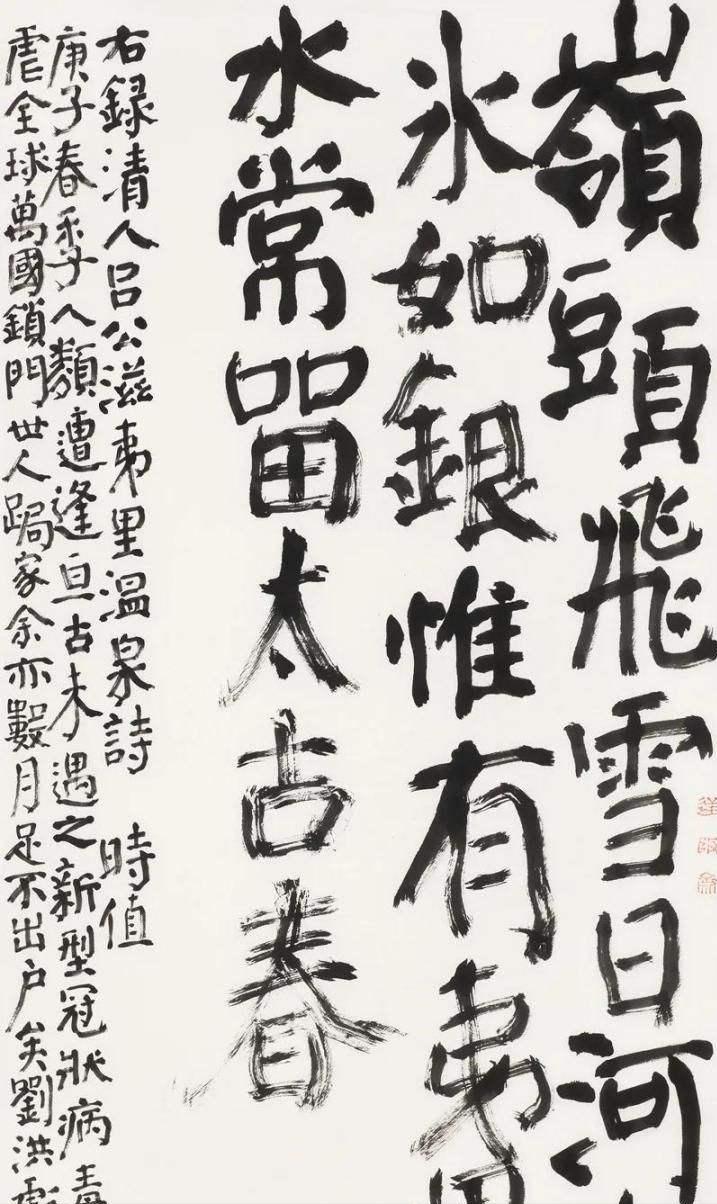 嶺頭飛雪日河
氷如銀惟有夷
水常留太古春
右録清人吕公滋夷里温泉詩 時值
庚子春季人類遭逢亘古未遇之新型冠狀病毒
虐全球萬國鎖門世人跼家余亦數月足不出户矣劉洪彪